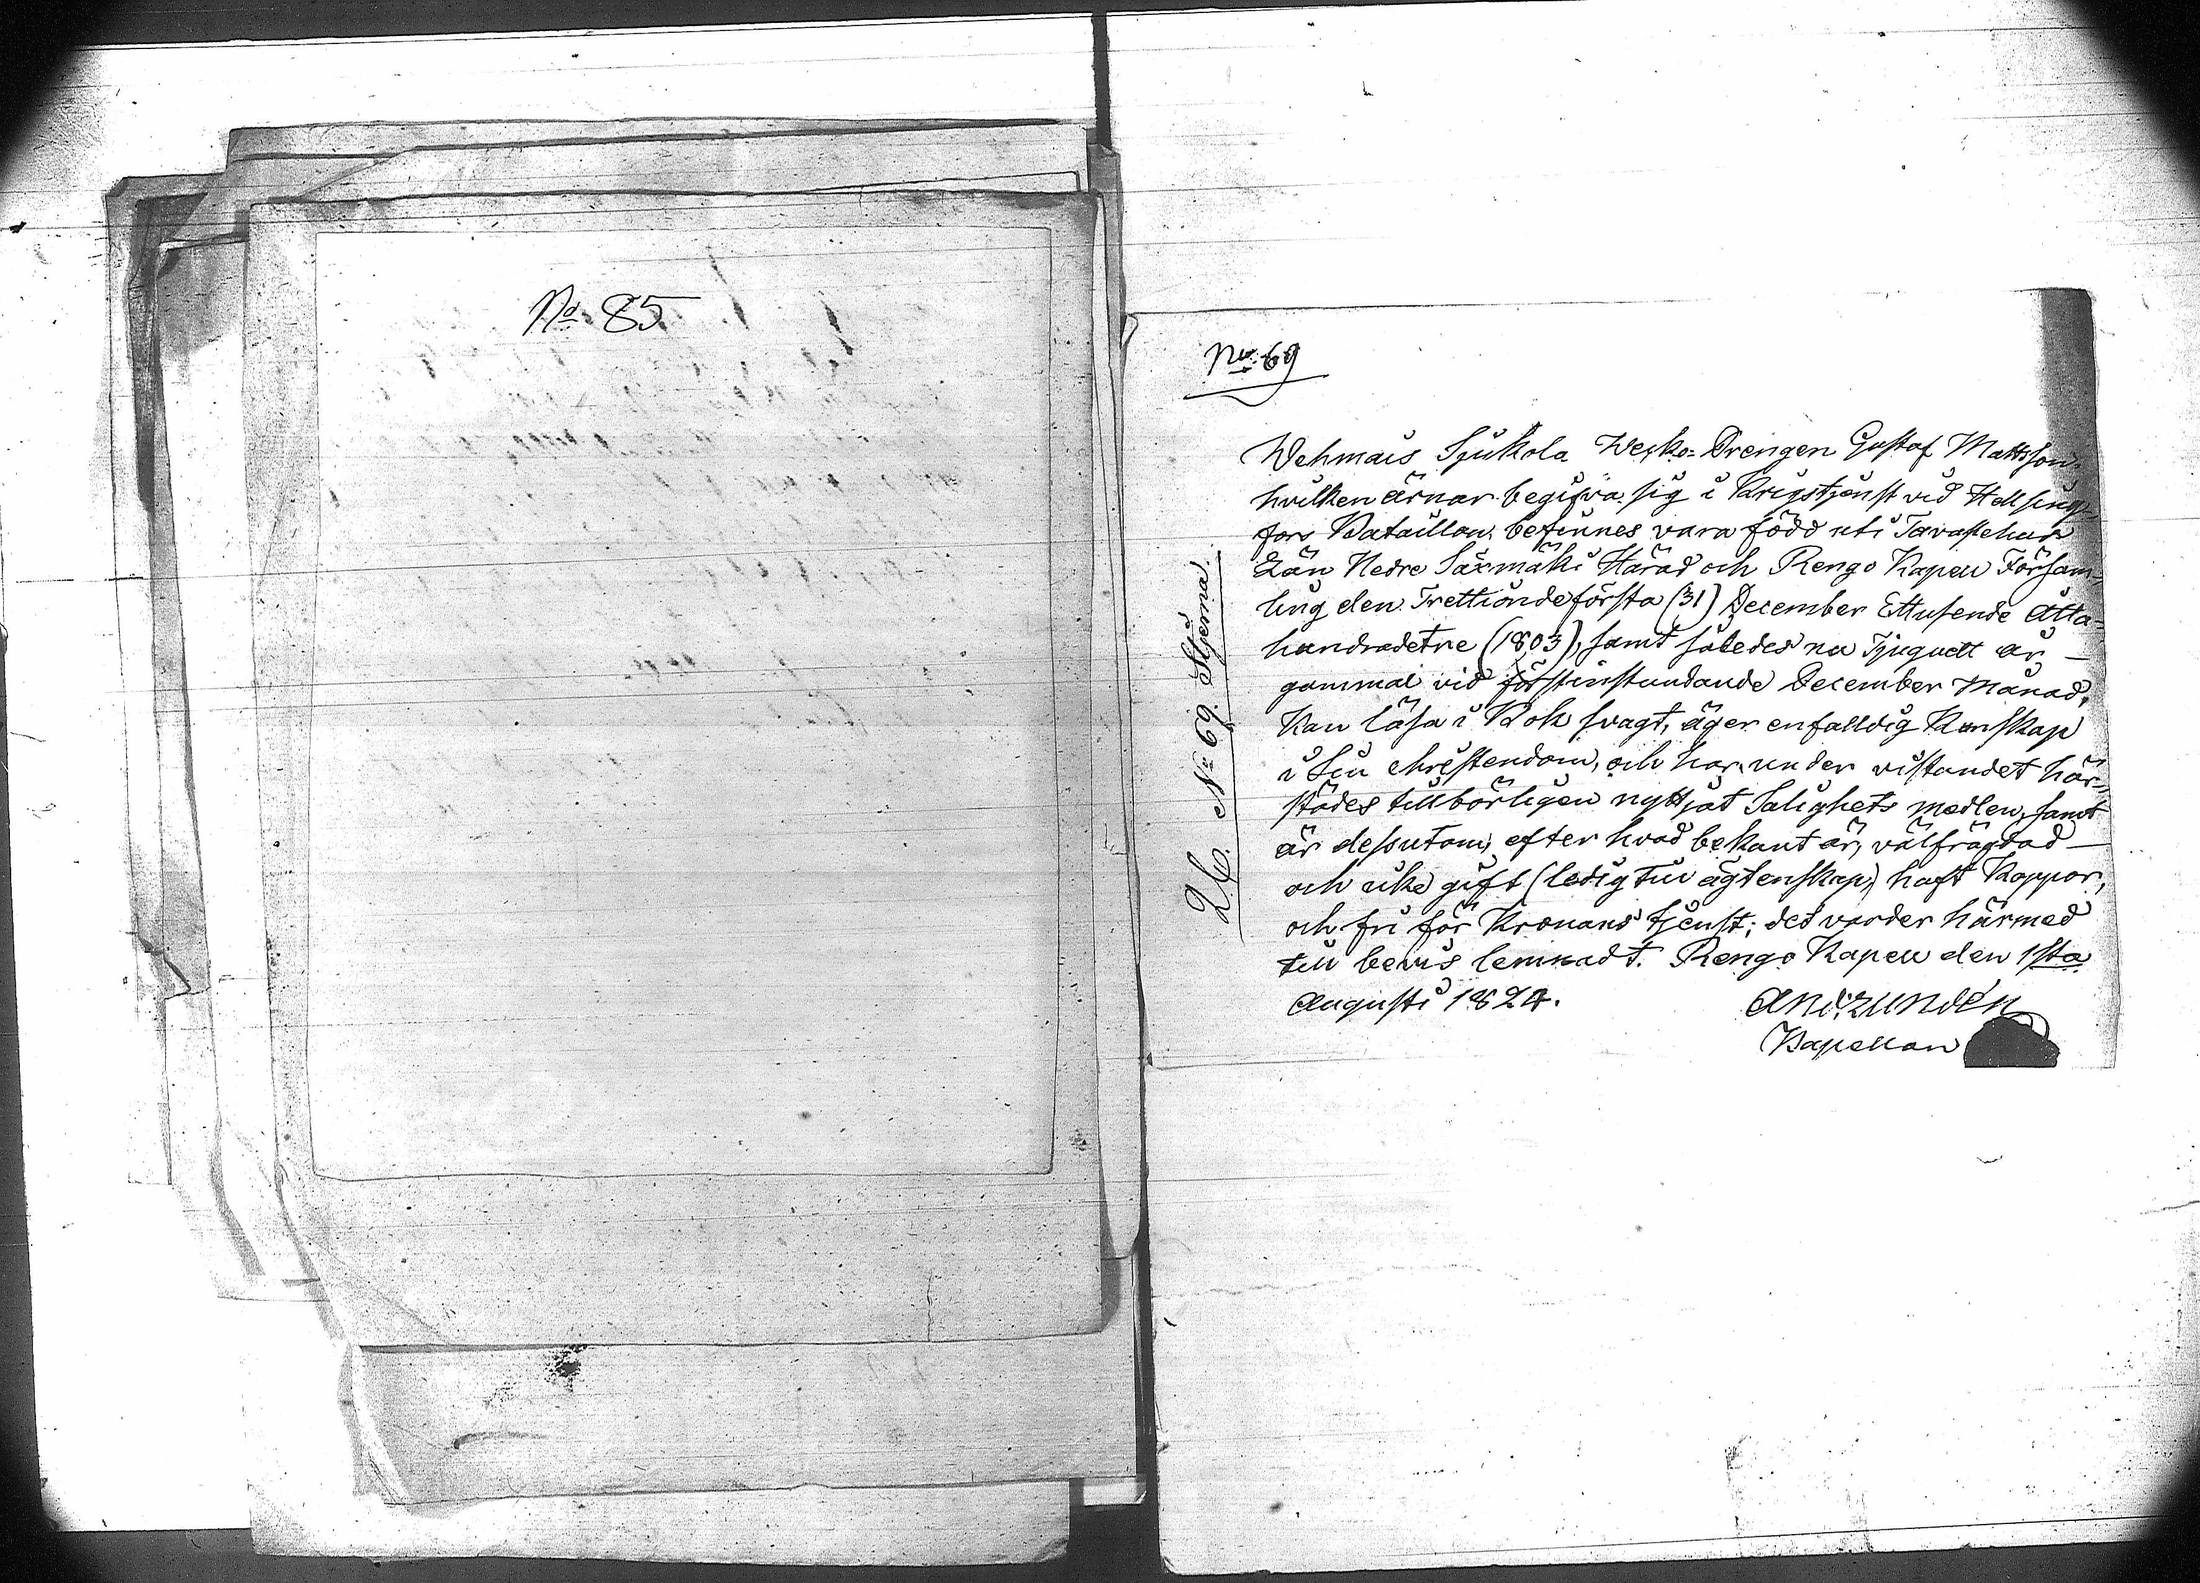 No 85
No 69
2 C. No 69. Stjerna.
Wehmais Sjukola Wecko-Drengen Gustaf Mattsson,
hvilken ärnar begifva sig i Krigstjenst vid Hellsing-
fors Bataillon, befinnes vara född uti Tavastehus
Län Nedre Saxmäki Härad och Rengo Kapell Försam-
ling den Trettiondeförsta (31) December Ettusende Åtta-
hundradetre (1803), samt således nu Tjuguett år
gammal vid förstinstundande December Månad,
Kan läsa i Bok svagt, äger enfalldig Kunskap
i Sin Christendom, och har under vistandet här-
städes tillbörligen nyttjat Salighets medlen, samt
är dessutom, efter hvad bekant är, välfrägdad
och icke gift (ledig till ägtenskap) haft Koppor,
och fri för Kronans tjenst; det varder härmed
till bevis lemnadt. Rengo Kapell den 1sta
Augusti 1824.
And: Lundén
Kapellan